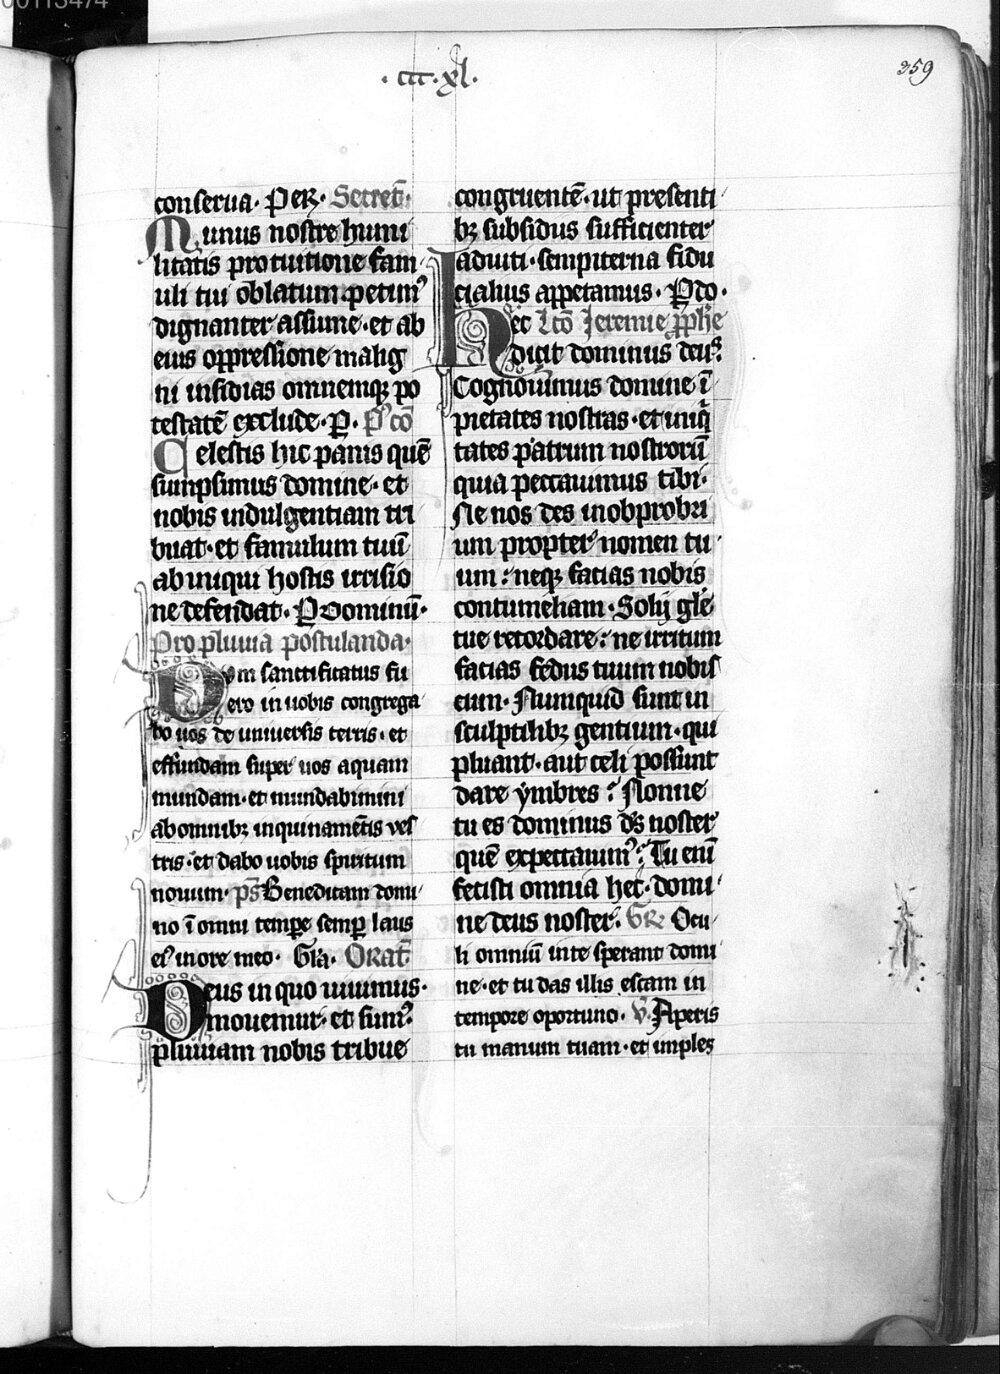 00113474
· ccc · xl ·
359
conserua · Per · Secret̄ ·
Munus nostre humi
litatis pro tuitione fam
uli tui oblatum petimꝰ
dignanter assume · et ab
eius oppressione malig
ni insidias omnemqꝫ po
testatē exclude · P · Pꝰ cō
Celestis hic panis quē
sumpsimus domine · et
nobis indulgentiam tri
buat · et famulum tuū
ab iniqui hostis irrisio
ne defendat · P dominū ·
Pro pluuia postulanda ·
Dvm sanctificatus fu
ero in uobis congrega
bo uos de uniuersis terris · et
effundam super uos aquam
mundam · et mundabimini
ab omnibꝫ inquinamētis ves
tris · et dabo uobis spiritum
nouum · p̄s Benedicam domi
no ī omni tempore semꝑ laus
eiꝰ in ore meo · Gl̄a · Orat̄
Deus in quo uiuimus ·
mouemur · et sumꝰ ·
pluuiam nobis tribue
congruentē · ut presenti
bꝫ subsidiis sufficienter
adiuti · sempiterna fidu
cialius appetamus · P do ·
Hec Lc̄o Jeremie ꝓph̄e
dicit dominus deus ·
Cognouimus domine ī
pietates nostras · et iniq
tates patrum nostrorū
quia peccauimus tibi ·
Ne nos des in obprobri
um propter nomen tu
um : neqꝫ facias nobis
contumeliam · Solij glē
tue recordare : ne irritum
facias fedus tuum nobis
cum · Numquid sunt in
sculptilibꝫ gentium · qui
pluant · aut celi possunt
dare ymbres ? Nonne
tu es dominus ds̄ noster
quē expectauimꝰ ? Tu enī
fecisti omnia hec · domi
ne deus noster · Gr̄ Ocu
li omniū in te sperant domi
ne · et tu das illis escam in
tempore oportuno · V · Aperis
tu manum tuam · et imples